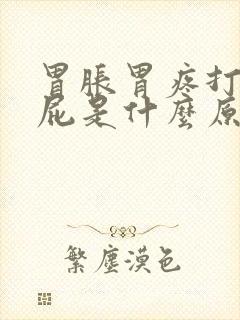 胃脹胃疼打
屁是什麼原
繁塵漠色